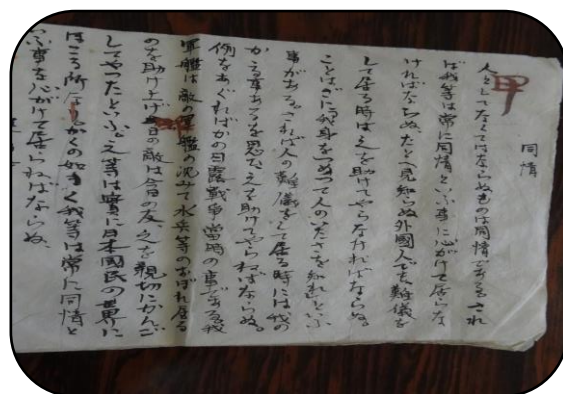 同情
甲
人としてなくてはならぬものは同情である。され
ば我等は常に同情といふ事に心がけて居らな
ければならぬ。たとへ見知らぬ外國人でも難儀を
して居る時は之を助けてやらなければならぬ。
ことはざに我身をつめつて人のいたさを知れといふ
事がある。されば人の難儀をして居る時には我の
かゝる事あるを思ひ之を助けてやらねばならぬ。
例をあぐればかの日露戰爭當時の事である我
軍艦は敵の軍艦の沈みて水兵等のおぼれ居る
のを助け上げ日の敵は今日の友、之を親切にかんご
してやつたといふ。之等は實に日本國民の世界に
ほこる所なりかくの如く我等は常に同情と
いふ事を心がけて居らねばならぬ。